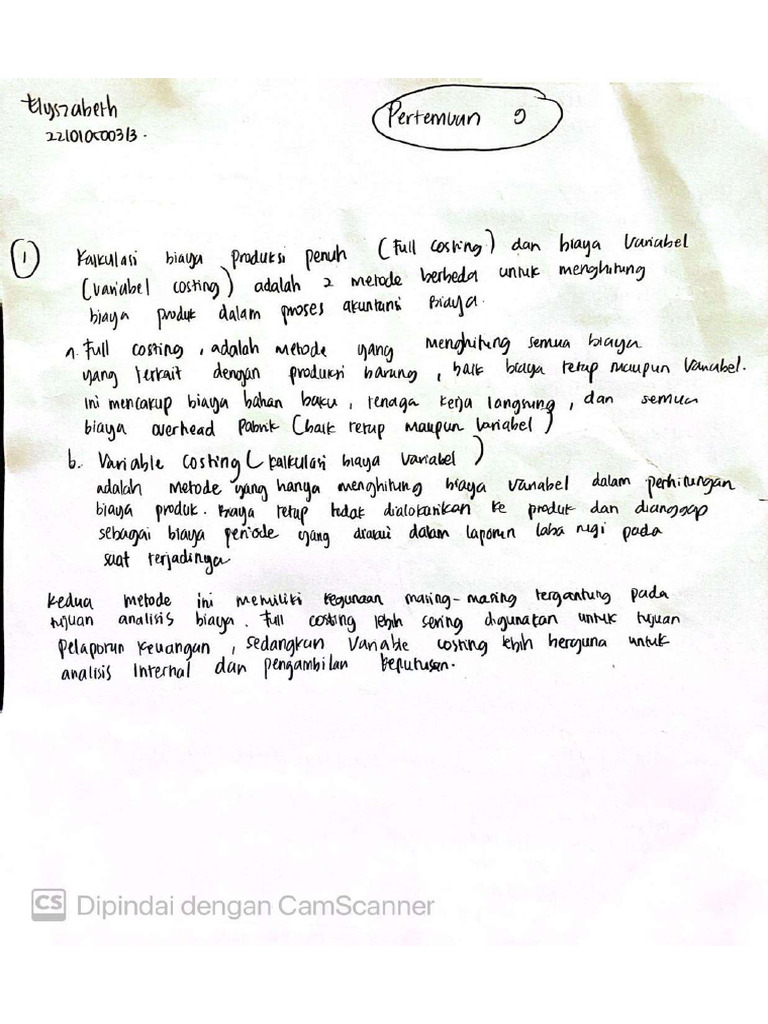 Elyszabeth
Pertemuan 9
221010500313.
1 Kalkulasi biaya produksi penuh (Full costing) dan biaya Variabel
(variabel costing) adalah 2 metode berbeda untuk menghitung
biaya produk dalam proses akuntansi Biaya.
a. Full costing, adalah metode yang menghitung semua biaya
yang terkait dengan produksi barang, baik biaya tetap maupun Variabel.
ini mencakup biaya bahan baku, tenaga kerja langsung, dan semua
biaya overhead pabrik (baik tetap maupun variabel)
b. Variable costing (kalkulasi biaya variabel)
adalah metode yang hanya menghitung biaya variabel dalam perhitungan
biaya produk. Biaya tetap tidak dialokasikan ke produk dan dianggap
sebagai biaya periode yang diakui dalam laporan laba rugi pada
saat terjadinya
Kedua metode ini memiliki kegunaan masing-masing tergantung pada
tujuan analisis biaya. Full costing lebih sering digunakan untuk tujuan
pelaporan keuangan, sedangkan Variable costing lebih berguna untuk
analisis internal dan pengambilan keputusan.
CS Dipindai dengan CamScanner